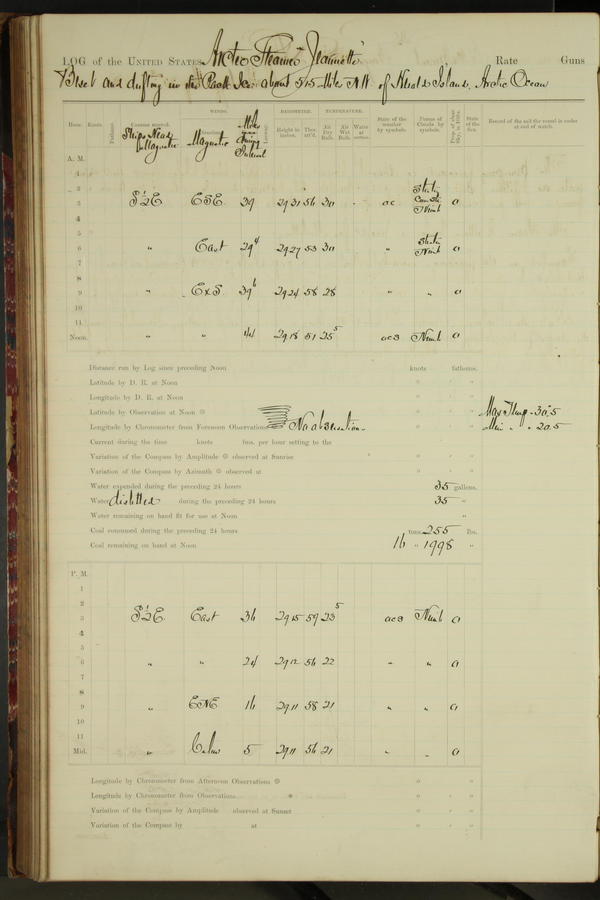 LOG of the UNITED STATES Arctic Steamer Jeannette Rate Guns
Beset and drifting in the Pack Ice about 515 Miles NW of Herald Island, Arctic Ocean
WINDS. BAROMETER. TEMPERATURE.
Hour. Knots. Ships Head Magnetic Magnetic Height in inches. Ther. att'd. Air Dry Bulb. Air Wet Bulb. Water at State of the weather by symbols. Forms of Clouds by symbols. State of the Sea. Record of the sail the vessel is under at end of watch.
A. M.
1
2
3 S½E ESE 39 29 31 56 30 oc 0
4
5
6 " East 29 4 29 27 53 30 " 0
7
8
9 " ExS 39 6 29 24 58 28 " " 0
10
11
Noon. " " 44 29 18 51 25 5 ocs Nimb 0
Distance run by Log since preceding Noon knots fathoms.
Latitude by D. R. at Noon ° ' "
Longitude by D. R. at Noon ° ' "
Latitude by Observation at Noon ° ' " Max Temp. 30.5
Longitude by Chronometer from Forenoon Observations No observation ° ' " Min " " 20.5
Current during the time knots fms. per hour setting to the
Variation of the Compass by Amplitude observed at Sunrise ° ' "
Variation of the Compass by Azimuth observed at ° ' "
Water expended during the preceding 24 hours 35 gallons.
Water distilled during the preceding 24 hours 35 "
Water remaining on hand fit for use at Noon "
Coal consumed during the preceding 24 hours tons, 255 lbs.
Coal remaining on hand at Noon 16 " 1998 "
P. M.
1
2
3 S½E East 36 29 15 59 23 5 ocs Nimb 0
4
5
6 " " 24 29 12 56 22 " " 0
7
8
9 " ENE 16 29 11 58 21 " " 0
10
11
Mid. " Calm 5 29 11 56 21 " " 0
Longitude by Chronometer from Afternoon Observations ° ' "
Longitude by Chronometer from Observations ° ' "
Variation of the Compass by Amplitude observed at Sunset ° ' "
Variation of the Compass by at ° ' "